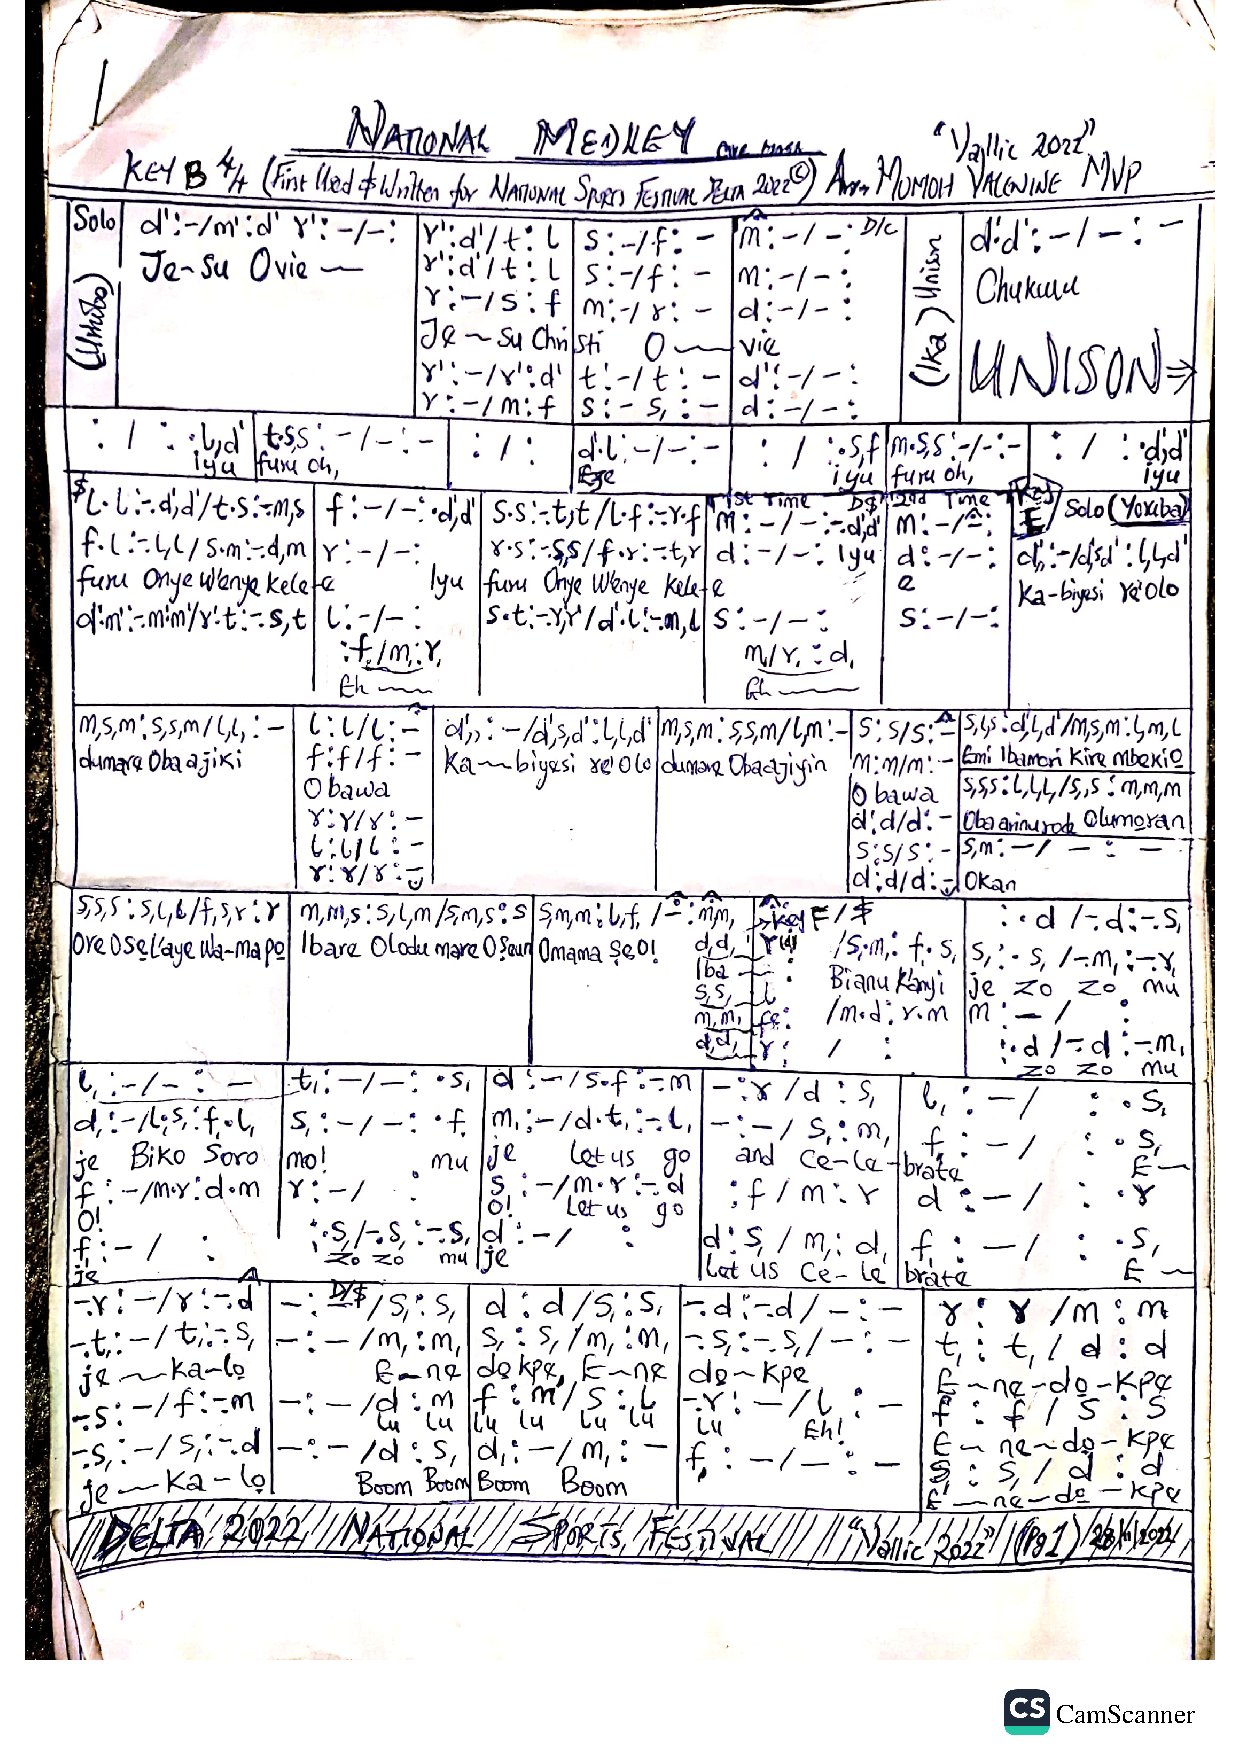 1
NATIONAL MEDLEY
"Vallic 2022"
KEY B 4/4 (First Used & Written for NATIONAL SPORTS FESTIVAL DELTA 2022©) Arr. MOMOH VALENINE MVP
Solo
d':-/m':d' r':-/-:
r':d'/t:l
s:-/f:-
m:-/-: D/C
(Ika) Unison
d'.d':-/-:-
Je-Su Ovie
r':d'/t:l
s:-/f:-
m:-/-:
Chukwu
r:-/s:f
m:-/r:-
d:-/-:
Je-Su Chri sti O vie
UNISON
r':-/r':d'
t:-/t:-
d':-/-:
r:-/m:f
s:- s,:-
d:-/-:
: / : .l,d'
t.s,s:-/-:-
: / :
d'.l:-/-:-
: / :.s,f
m.s,s:-/-:-
: / : .d',d'
iyu
furu oh,
Eze
iyu
furu oh,
iyu
1st Time D$
2nd Time
Solo (Yoruba)
l.l:-.d',d'/t.s:-.m,s
f:-/-:.d',d'
s.s:-.t,t/l.f:-.r.f
m:-/-:-.d',d'
m:-/-:
f.l:-.l,l/s.m:-.d,m
r:-/-:
r.s:-.s,s/f.r:-.t,r
d:-/-: Iyu
d:-/-:
furu Onye Wenye Kele-e
Iyu
furu Onye Wenye Kele-e
e
Ka-biyesi re'Olo
d'.m':-.m'.m'/r'.t:-.s,t
l:-/-:
s.t:-.r',r'/d'.l:-.m,l
s:-/-:
s:-/-:
:f,/m,:r,
m,/r,:d,
Eh
Eh
m,s,m:s,s,m/l,l,:-
l:l/l:-
d',,:-/d',s,d':l,l,d'
m,s,m:s,s,m/l,m:-
s:s/s:-
s,l,s:d',l,d'/m,s,m:l,m,l
dumare Obaajiki
f:f/f:-
Ka-biyesi re'Olo
dumare Obaajiyin
m:m/m:-
Emi Ibamori Kire Mbekio
Obawa
Obawa
s,s,s:l,l,l/s,,s:m,m,m
r:r/r:-
d:d/d:-
Olumoran
l:l/l:-
s:s/s:-
s,m:-/-:-
r:r/r:-
d:d/d:-
Okan
s,s,s:s,l,l/f,s,r:r
m,m,s:s,l,m/s,m,s:s
s,m,m:l,f,/-:m,m,
Key F/$
:.d/-.d:-.s,
Ore Ose L'aye Wa-ma po
Ibare Olodu mare Oseun
Omama SeO!
d,d,
/s,.m,:f,.s,
s,:.s,/-.m,:-.r,
Iba
Bianu Kanyi
je zo zo mu
s,s,
m,m,
/m.d:r.m
m:-/ :
d,d,
r: / :
:.d/-.d:-.m,
zo zo mu
l,:-/-:-
t,:-/-:.s,
d:-/s.f:-.m
-:r/d:s,
l,:-/ :.s,
d,:-/l,.s,:f,.l,
s,:-/-:.f,
m,:-/d.t,:-.l,
-:-/s,:m,
f,:-/ :.s,
je Biko Soro
mo! mu
je Let us go
and Ce-le-brate
E
f:-/m.r:d.m
r:-/ :
s:-/m.r:-.d
:f/m:r
d:-/ :.r
O!
O! Let us go
f,:-/ :
:.s,/-.s,:-.s,
d:-/ :
d:s,/m,:d,
f,:-/ :.s,
je
zo zo mu
je
Let us Ce-le
brate
E
-.r:-/r:-.d
-: D/$ /s,:s,
d:d/s,:s,
-.d:-.d/-:-
r:r/m:m
-.t,:-/t,:-.s,
-:-/m,:m,
s,:s,/m,:m,
-.s,:-.s,/-:-
t,:t,/d:d
je Ka-lo
E-ne
do kpe, E-ne
do-kpe
E-ne-do-kpe
-.s:-/f:-.m
-:-/d:m
f:m/s:l
-.r:-/l:-
f:f/s:s
Lu Lu
Lu Lu Lu Lu
Lu Eh!
E-ne-do-kpe
-.s,:-/s,:-.d
-:-/d:s,
d,:-/m,:-
f,:-/-:-
s,:s,/d:d
je Ka-lo
Boom Boom
Boom Boom
E-ne-do-kpe
DELTA 2022 NATIONAL SPORTS FESTIVAL "Vallic 2022" (Pg 1) 28/11/2022
CS CamScanner